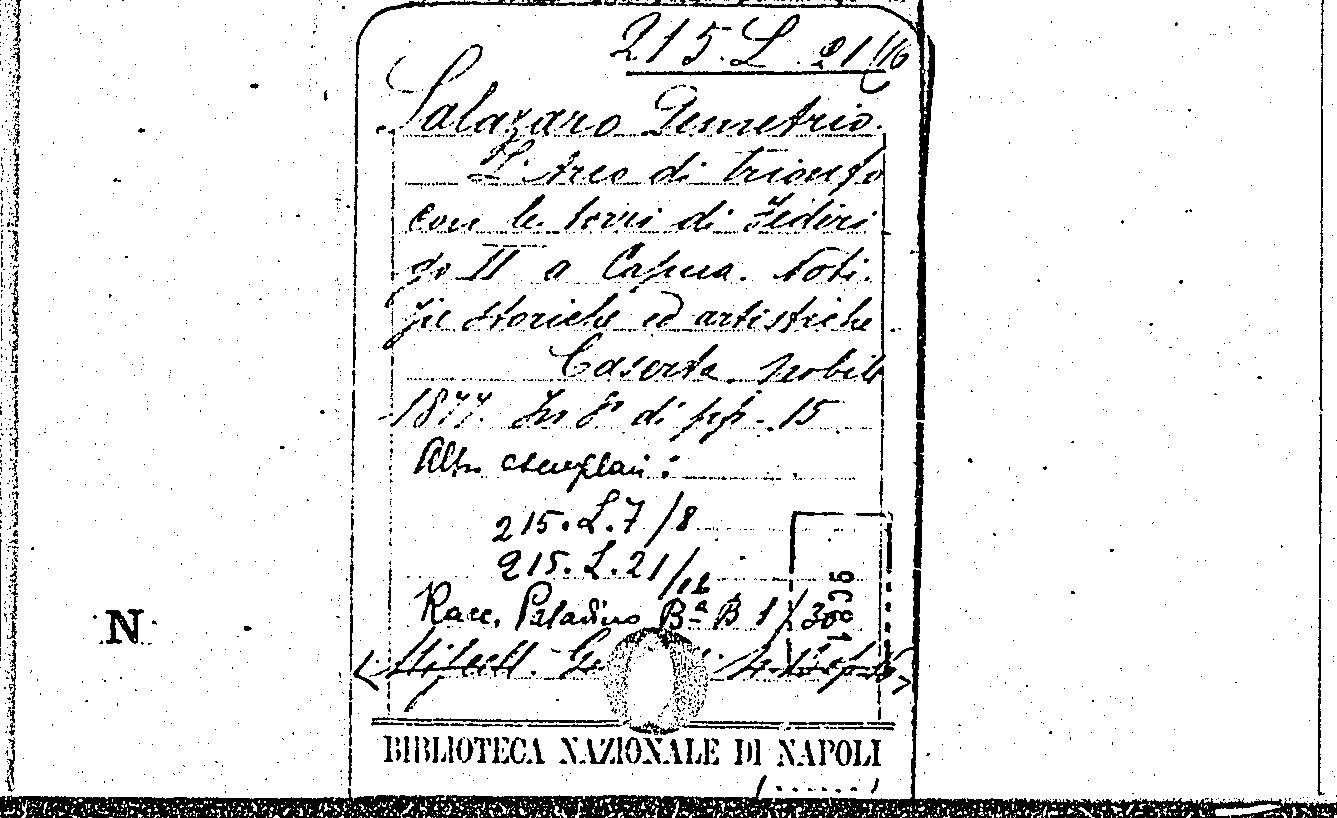 215.L.21/16
Salazaro Demetrio.
L'Arco di trionfo
con le torri di Federi
go II a Capua. Noti-
zie storiche ed artistiche
Caserta. Nobile
1877. In 8° di pp. 15
Altri esemplari:
215.L.7/8
215.L.21/16
Racc. Paladino Bª B 1/30
N
BIBLIOTECA NAZIONALE DI NAPOLI